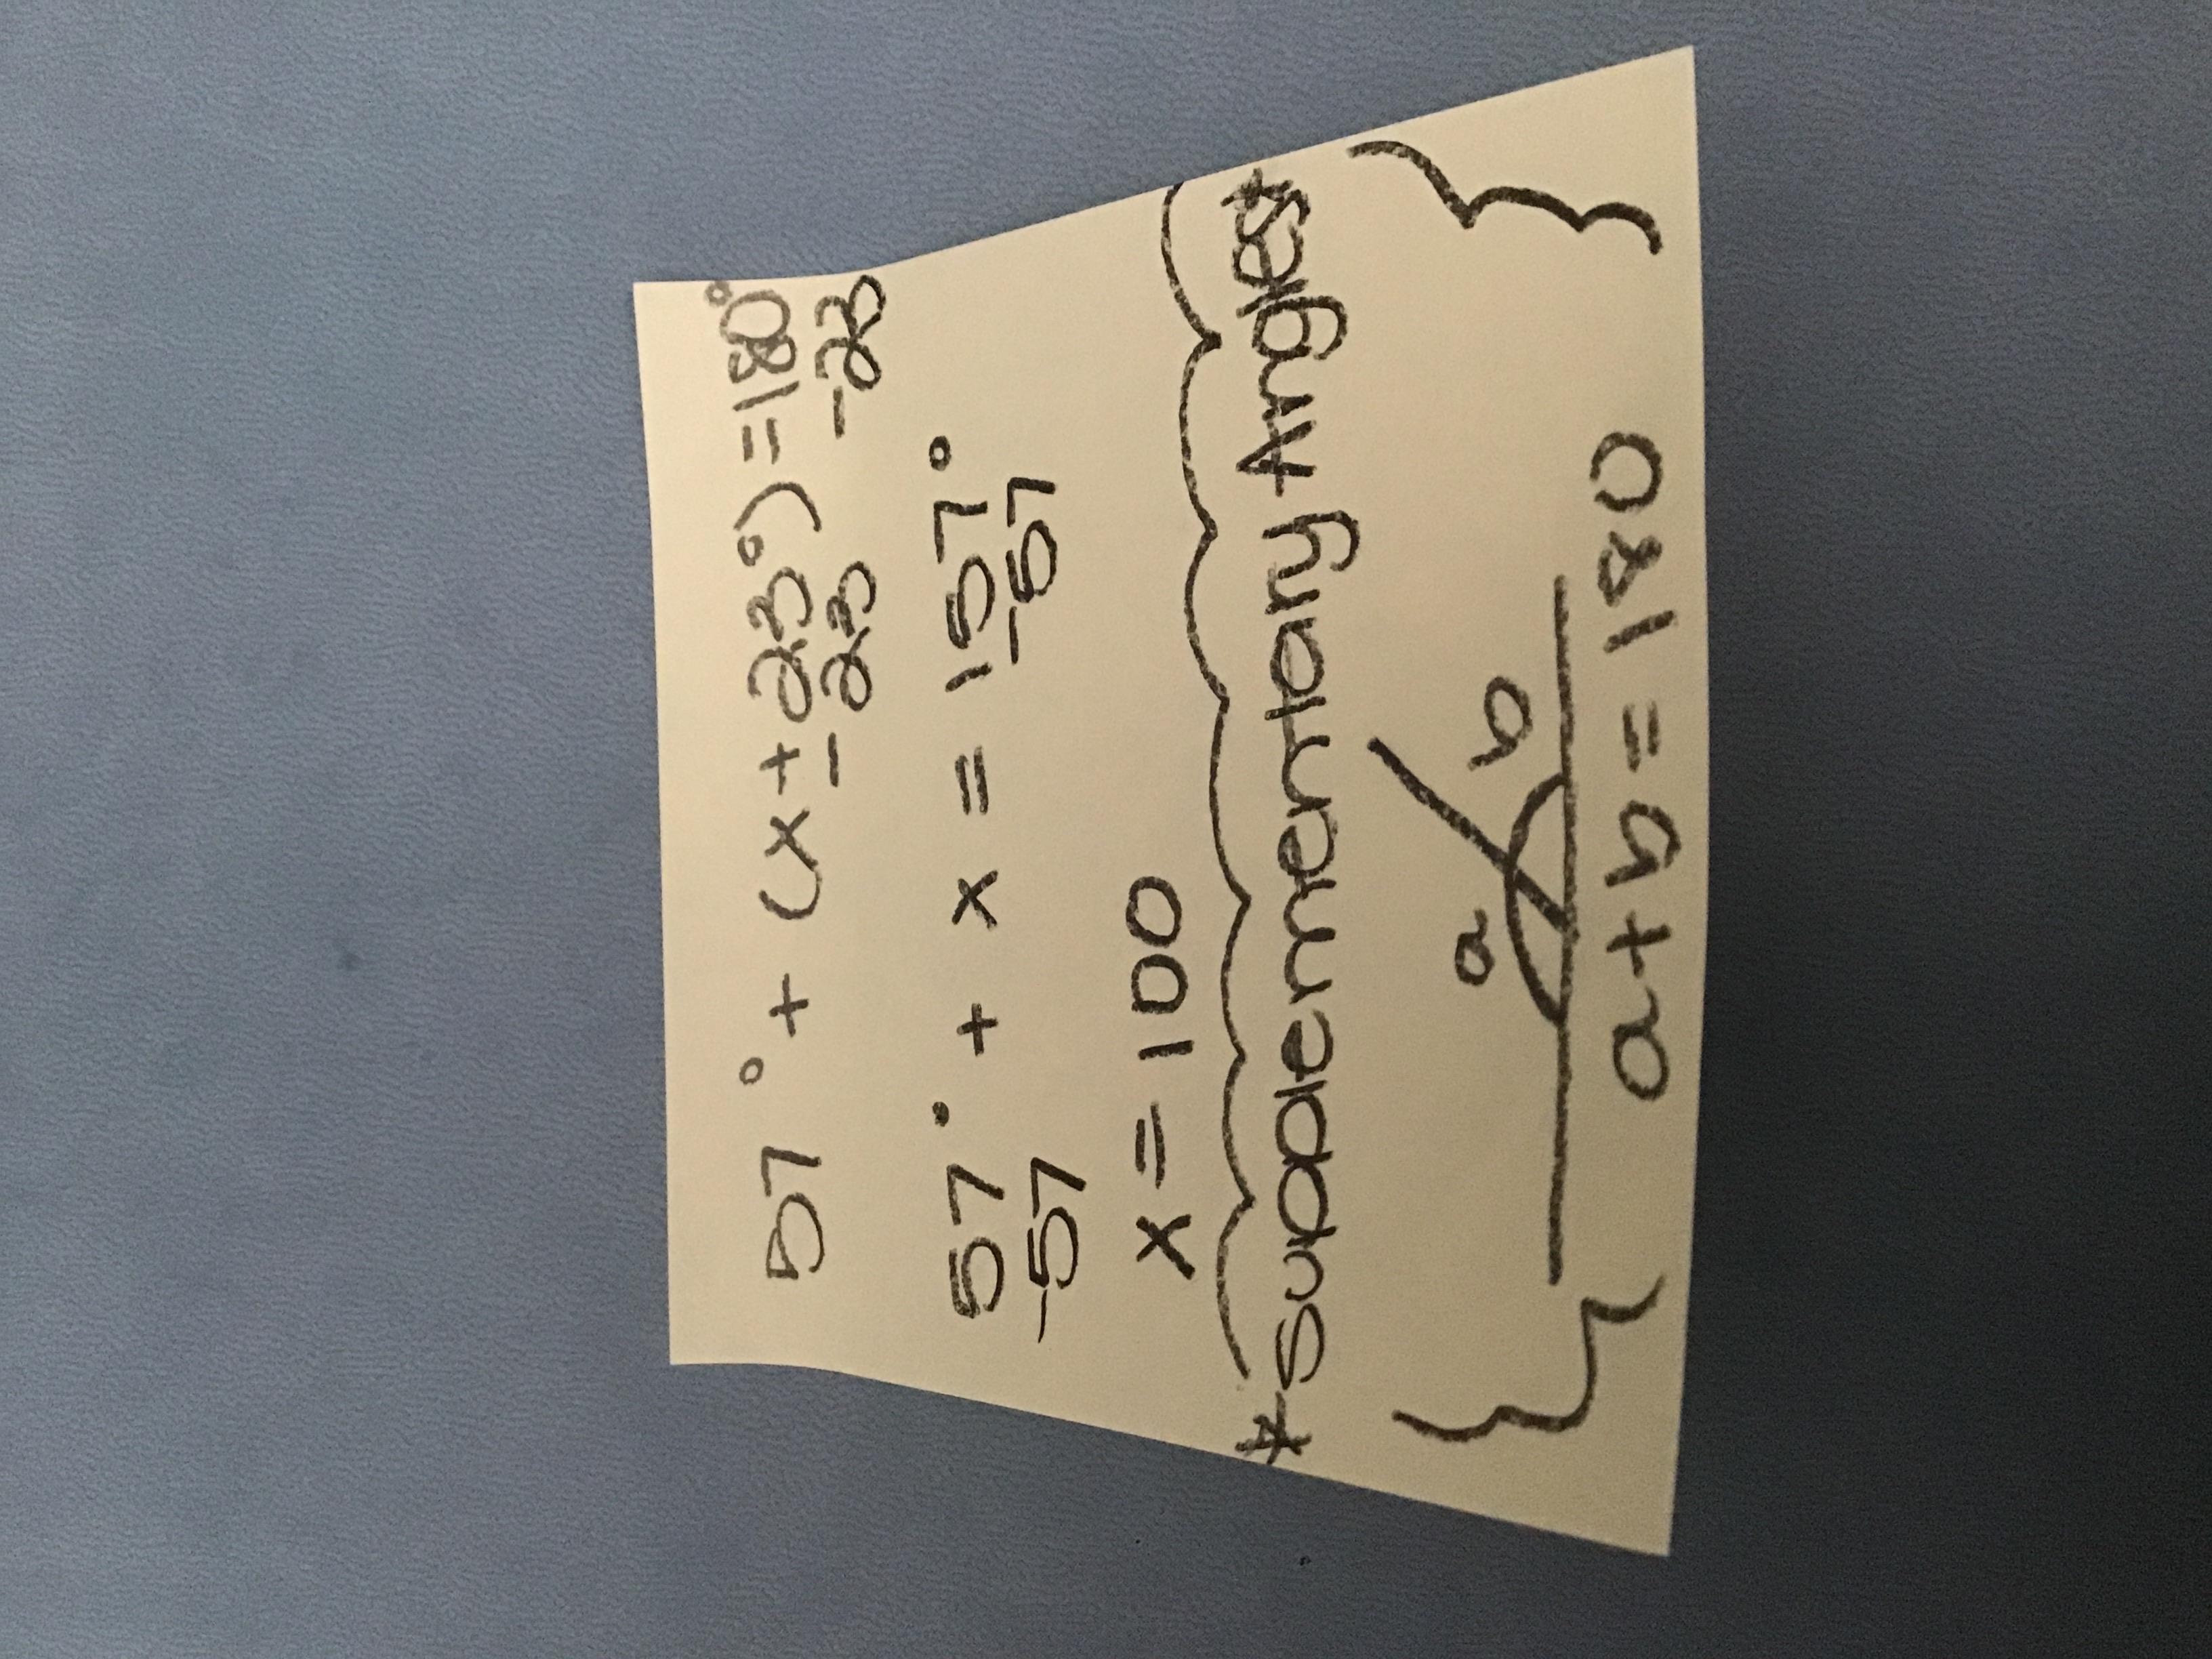 57° + (x + 23°) = 180°
- 23 -23
57° + x = 157°
-57 -57
x = 100
*Supplementary Angles*
a b
a + b = 180